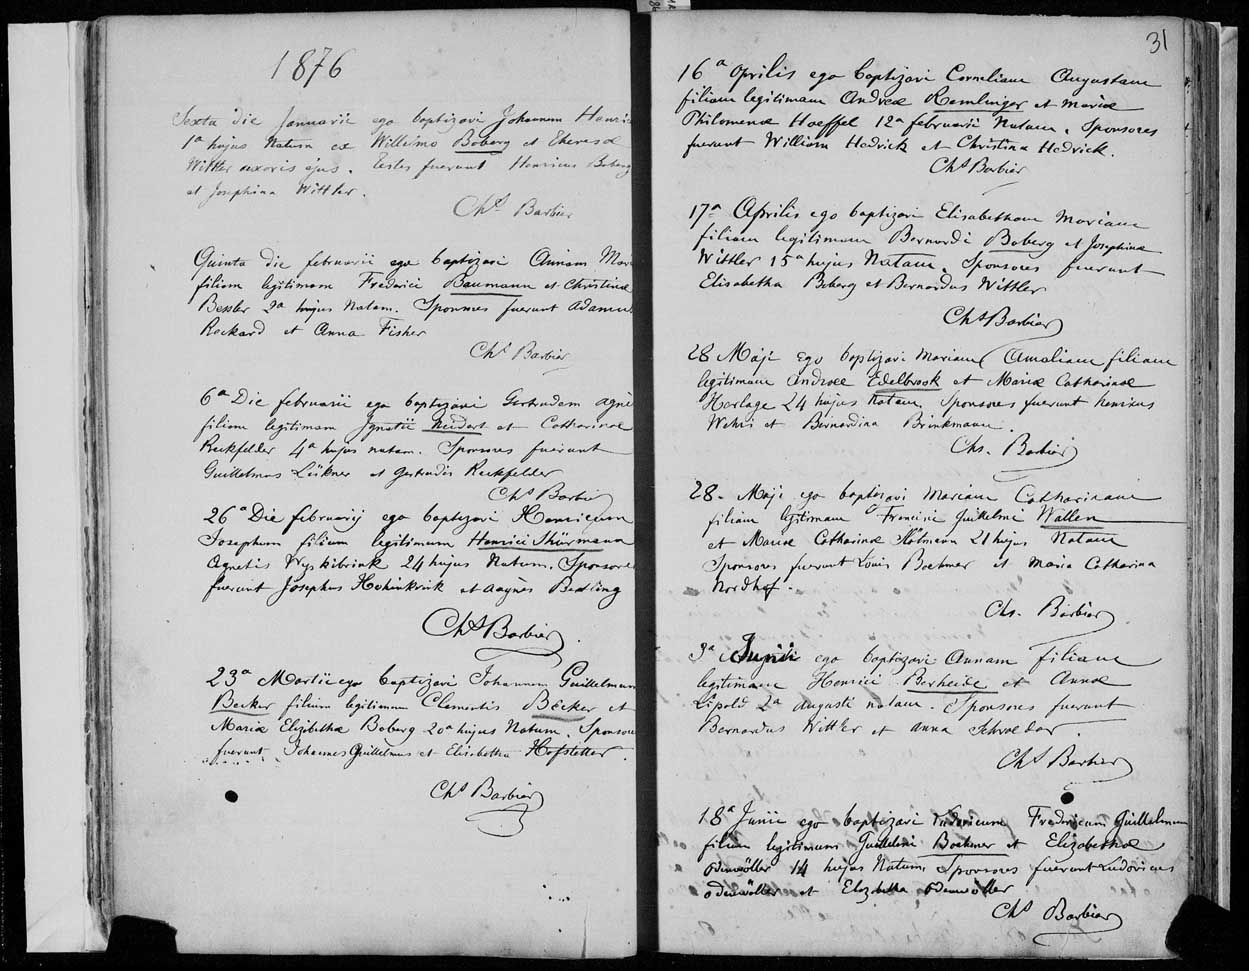 1876
Sexta die Januarii ego baptizavi Johannem Henric
1a hujus Natum ex Willelmo Boberg et Theresa
Wittler uxoris ejus. Testes fuerunt Henricus Boberg
et Josephina Wittler.
Chs Barbier
Quinta die februarii ego baptizavi Annam Mari
filiam legitimam Frederici Baumann et Christinæ
Bessler 2a hujus Natam. Sponsores fuerunt Adamus
Reckard et Anna Fisher
Chs Barbier
6a Die februarii ego baptizavi Gertrudem Agne
filiam legitimam Ignatii Neidert et Catharinæ
Reckfelder 4a hujus natam. Sponsores fuerunt
Guillelmus Lükner et Gertrudis Reckfelder
Chs Barbier
26a Die februarij ego baptizavi Henricum
Josephum filium legitimum Henrici Stürmann
Agnetis 24 hujus Natum. Sponsores
fuerunt Josephus Hohinkirik et Aagnes Bedling
Chs Barbier
23a Martii ego baptizavi Johannem Guillelmum
Becker filium legitimum Clementis Becker et
Mariæ Elizibethæ Boberg 20a hujus Natum. Sponsores
fuerunt Johannes Guillelmus et Elisabetha Hofstetter.
Chs Barbier
31
16a Aprilis ego baptizavi Corneliam Augustam
filiam legitimam Andreæ Remlinger et Mariæ
Philomenæ Hoeffel 12a februarii Natam. Sponsores
fuerunt William Hedrick et Christina Hedrick.
Chs Barbier
17a Aprilis ego baptizavi Elisabetham Mariam
filiam legitimam Bernardi Boberg et Josephinæ
Wittler 15a hujus Natam. Sponsores fuerunt
Elisabetha Boberg et Bernardus Wittler
Chs Barbier
28 Maji ego baptizavi Mariam Amaliam filiam
legitimam Andreæ Edelbrook et Mariæ Catharinæ
Harlage 24 hujus Natam. Sponsores fuerunt Henricus
Wehri et Bernardina Brinkmann.
Chs. Barbier
28 - Maji ego baptizavi Mariam Catharinam
filiam legitimam Francisci Guillelmi Wallen
et Mariæ Catharinæ 21 hujus Natam
Sponsores fuerunt Louis Boehmer et Maria Catharina
Nordhof.
Chs. Barbier
3a Junii ego baptizavi Annam filiam
legitimam Henrici Berheide et Annæ
Lipold 2a Augusti natam. Sponsores fuerunt
Bernardus Wittler et Anna Schroeder.
Chs Barbier
18a Junii ego baptizavi Ludovicum Fredericum Guillelmum
filium legitimum Guillelmi Boehmer et Elizabethæ
Odenwöller 14 hujus Natum. Sponsores fuerunt Ludovicus
Odenwöller et Elizibetha Odenwöller
Chs Barbier